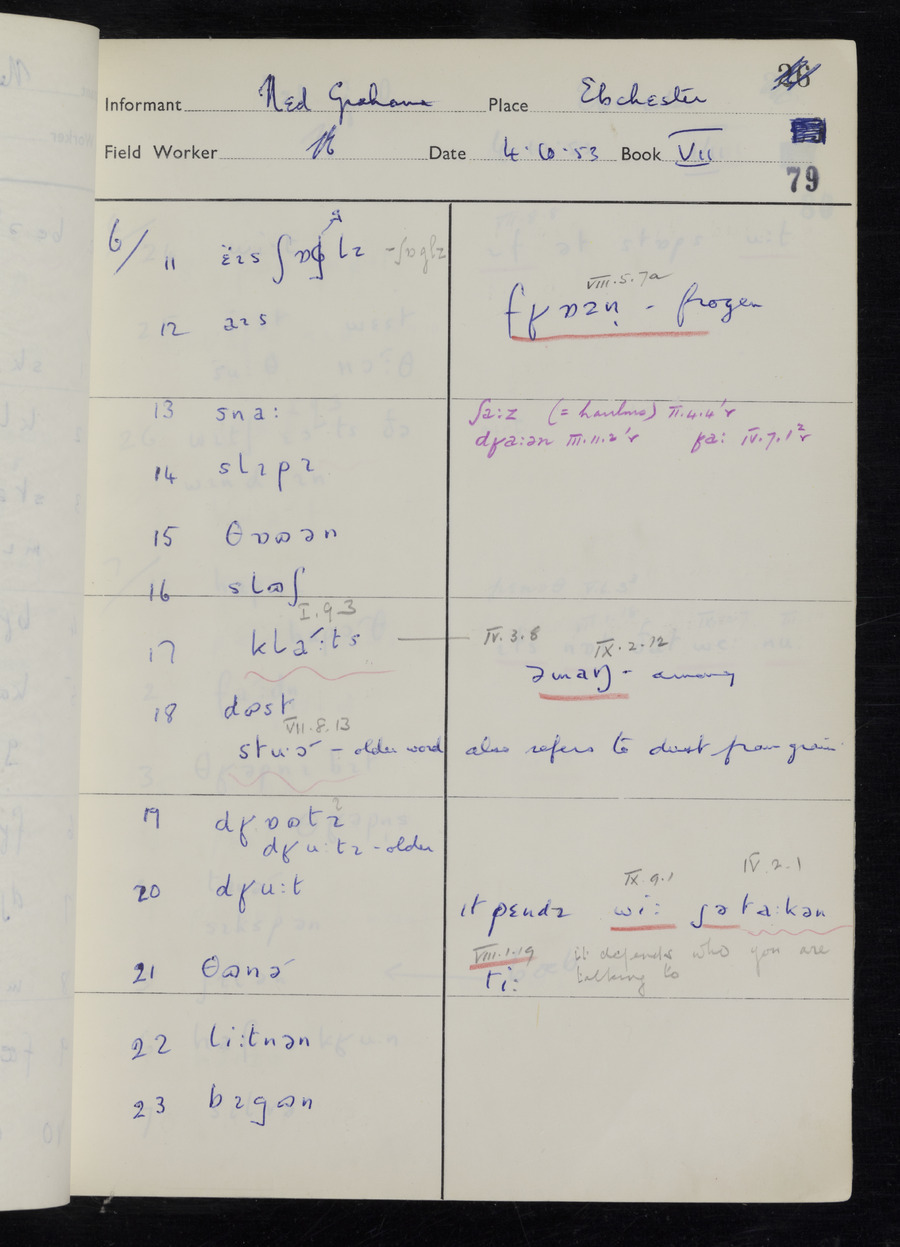 Informant Ned Graham Place Ebchester
Field Worker Date 4·10·53 Book VII
79
6/ 11
VIII.5.7a
fʁɒzn̩ - frozen
12 aɪs
13 sna:
ʃa:z (= haulms) II.4.4'r
dʁa:ən III.11.2'r ʁa: IV.7.1²r
14 slɪpɪ
15 θɒɷən
16 slɷʃ
I.9.3
17 kla:ts IV.3.8
IX.2.12
əmaŋ - among
18 dɷst
VII.8.13
stu:ɔ - older word also refers to dust from grain
19 dʁɒɷtɪ
dʁu:tɪ - older
20 dʁu:t
IX.9.1 IV.2.1
ɪt pɛndz wi: jə ta:kən
VIII.1.19 it depends who you are
21 θɷnə ti: talking to
22 li:tnən
23 bɪgɷn